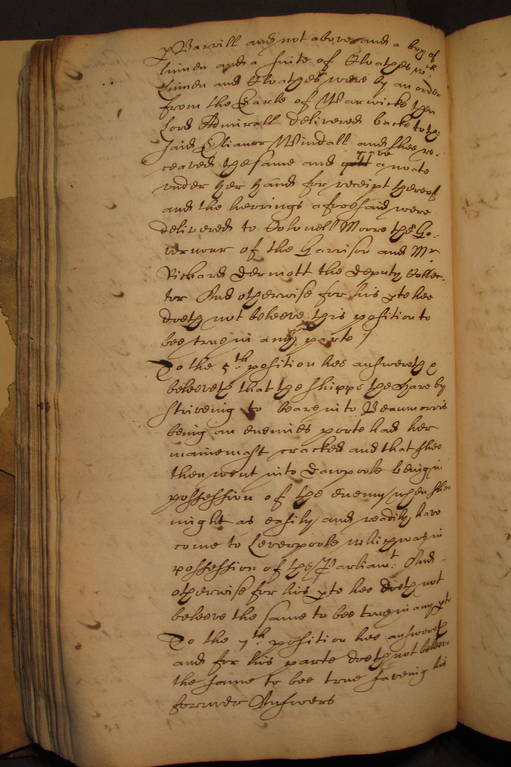 Barrill and not above and a boy of
linnen and a suite of Cloathes wch
linnen and Cloathes were by an order
from the Earle of Warwicke then
Lord Admirall delivered backe to the
said Elianor Windall and shee re-
ceaved the same and gave a noate
under her hand for receipt thereof
and the herrings aforesaid were
delivered to Colonell Moore the Go-
vernour of the Garrison and Mr
Richard Dermott the deputy Collec-
tor And otherwise for his pte hee
doeth not beleeve this position to
bee true in any parte
To the 5th position hee answereth
beleeveth that the shippe the Hare by
striveing to beare into Beaumorris
being an enemies porte had her
mainemast cracked and that shee
then went into beeing in
possession of the enemy, when shee
might as easily and readily have
come to Leverpoole which was in
possession of the Parliamt. And
otherwise for his pte hee doeth not
beleeve the same to bee true in any pte
To the 7th position hee answereth
and for his parte doeth not beleeve
the same to bee true saveing his
former Answers